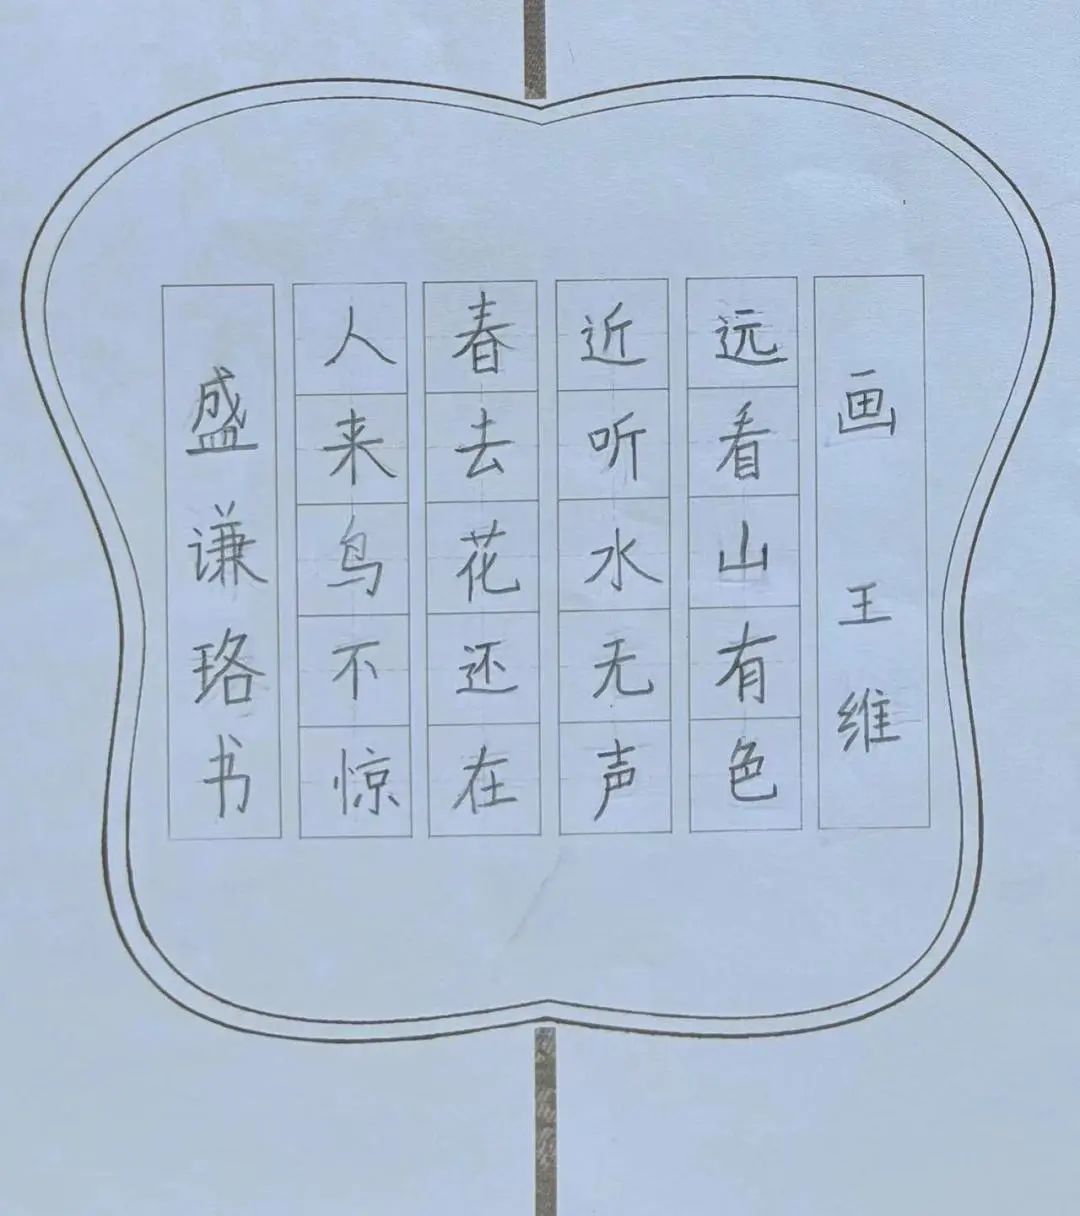 画 王维
远看山有色
近听水无声
春去花还在
人来鸟不惊
盛谦珞书